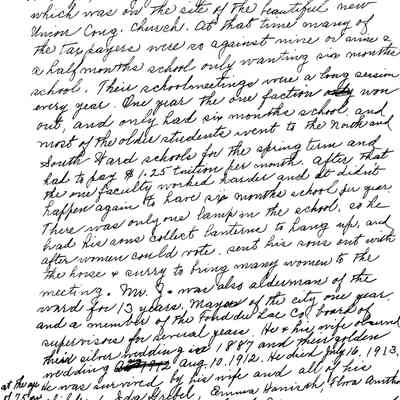 which was on the site of the beautiful new
Union Cong. Church. At that time many of
the taxpayers were so against nine or nine &
a half months school only wanting six months
school. Their schoolmeetings were a long session
every year. One year the one faction won
out, and only had six months school, and
most of the older students went to the North and
South Ward schools for the spring term and
had to pay $1.25 tuition per month. After that
the one faculty worked harder and it didn't
happen again to have six months school per year.
There was only one lamp in the school, so he
had his sons collect lanterns to hang up, and
after women could vote. sent his sons out with
the horse & surry to bring many women to the
meeting. Mr. G. was also alderman of the
ward for 13 years, Mayor of the city one year,
and a member of the Fond du Lac Co. board of
supervisors for several years. He & his wife observed
their silver wedding in 1887 and their golden
wedding Aug. 10, 1912. He died July 16, 1913,
at the age He was survived by his wife and all of his
of 75 Ida Emma